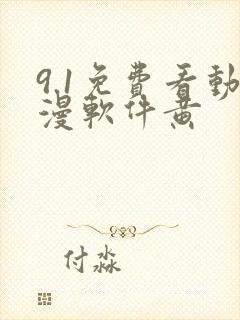 91免費看動
漫軟件黃
付淼